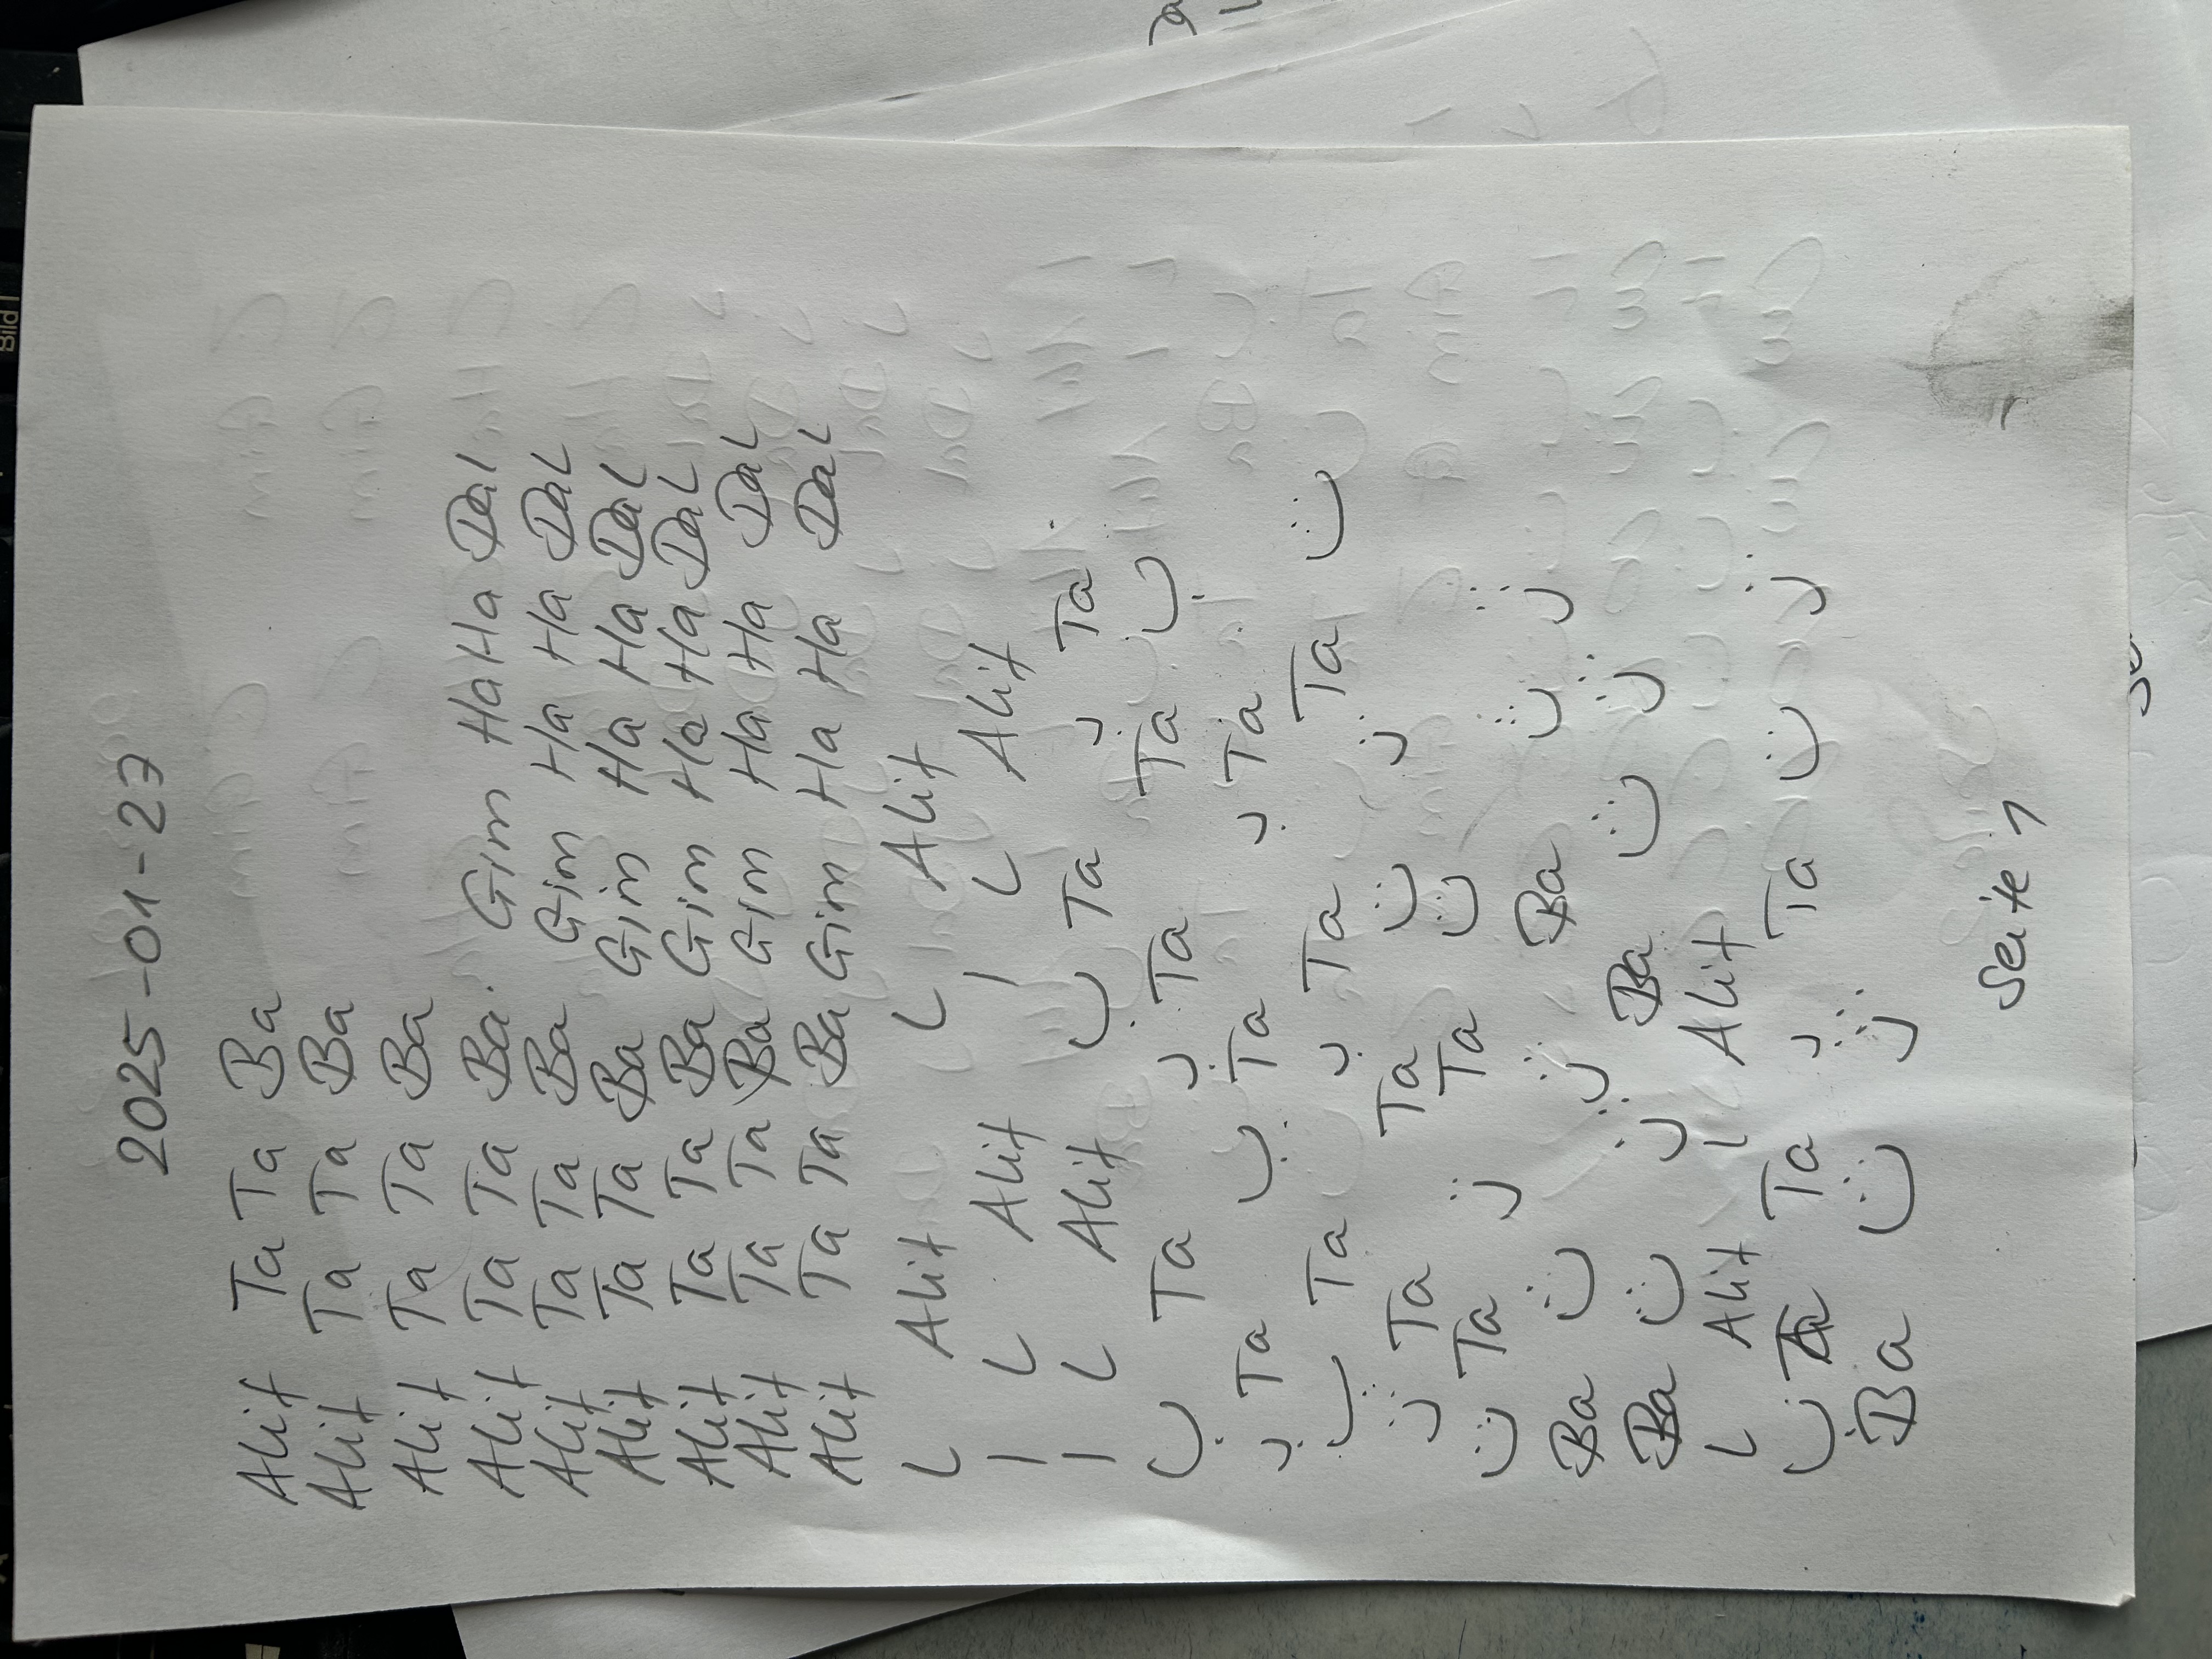 2025-01-27
Alif Ta Ta Ba
Alif Ta Ta Ba
Alif Ta Ta Ba
Alif Ta Ta Ba Gim Ha Ha Dal
Alif Ta Ta Ba Gim Ha Ha Dal
Alif Ta Ta Ba Gim Ha Ha Dal
Alif Ta Ta Ba Gim Ha Ha Dal
Alif Ta Ta Ba Gim Ha Ha Dal
Alif Ta Ta Ba Gim Ha Ha Dal
L Alif L Alif
ا L Alif ا L Alif
ا L Alif ب Ta بـ Ta
ب Ta بـ Ta Ta ب
بـ Ta ب Ta بـ Ta
ب Ta بـ Ta Ta ت
تـ Ta Ta ت تـ
ت Ta تـ Ta ت
Ba ث ثـ Ba ث ثـ
Ba ث ثـ Ba ث ثـ
L Alif L Alif
ب Ta بـ Ta ت تـ
Ba ث ثـ
Seite 1